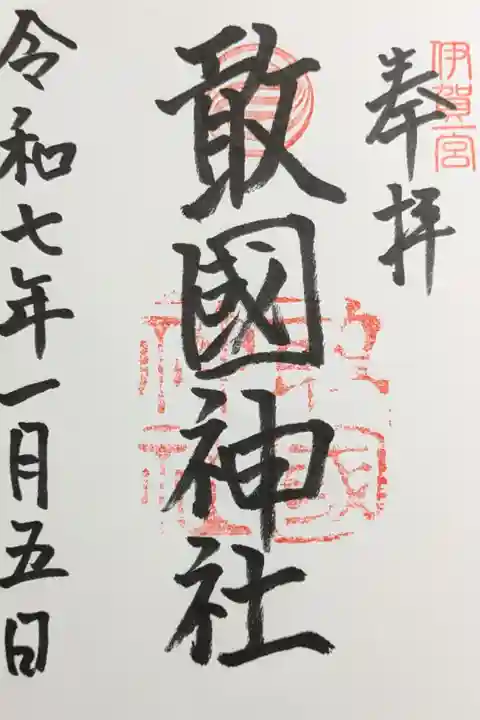 伊賀一宮
奉拝
敢國神社
令和七年一月五日